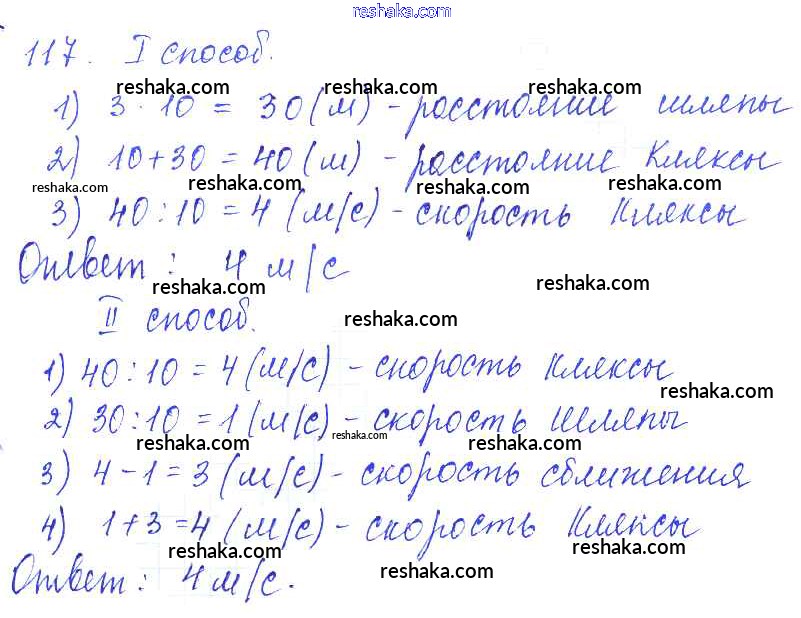 reshaka.com
117. I способ.
reshaka.com reshaka.com
1) 3 · 10 = 30 (м) - расстояние шляпы
reshaka.com reshaka.com reshaka.com
2) 10+30 = 40 (м) - расстояние Кляксы
reshaka.com reshaka.com reshaka.com reshaka.com
3) 40 : 10 = 4 (м/с) - скорость Кляксы
Ответ : 4 м/с
reshaka.com reshaka.com
II способ.
reshaka.com
1) 40 : 10 = 4 (м/с) - скорость Кляксы
reshaka.com
2) 30 : 10 = 1 (м/с) - скорость Шляпы
reshaka.com reshaka.com reshaka.com
3) 4 - 1 = 3 (м/с) - скорость сближения
reshaka.com reshaka.com
4) 1+3 = 4 (м/с) - скорость Кляксы
reshaka.com reshaka.com
Ответ : 4 м/с.
reshaka.com